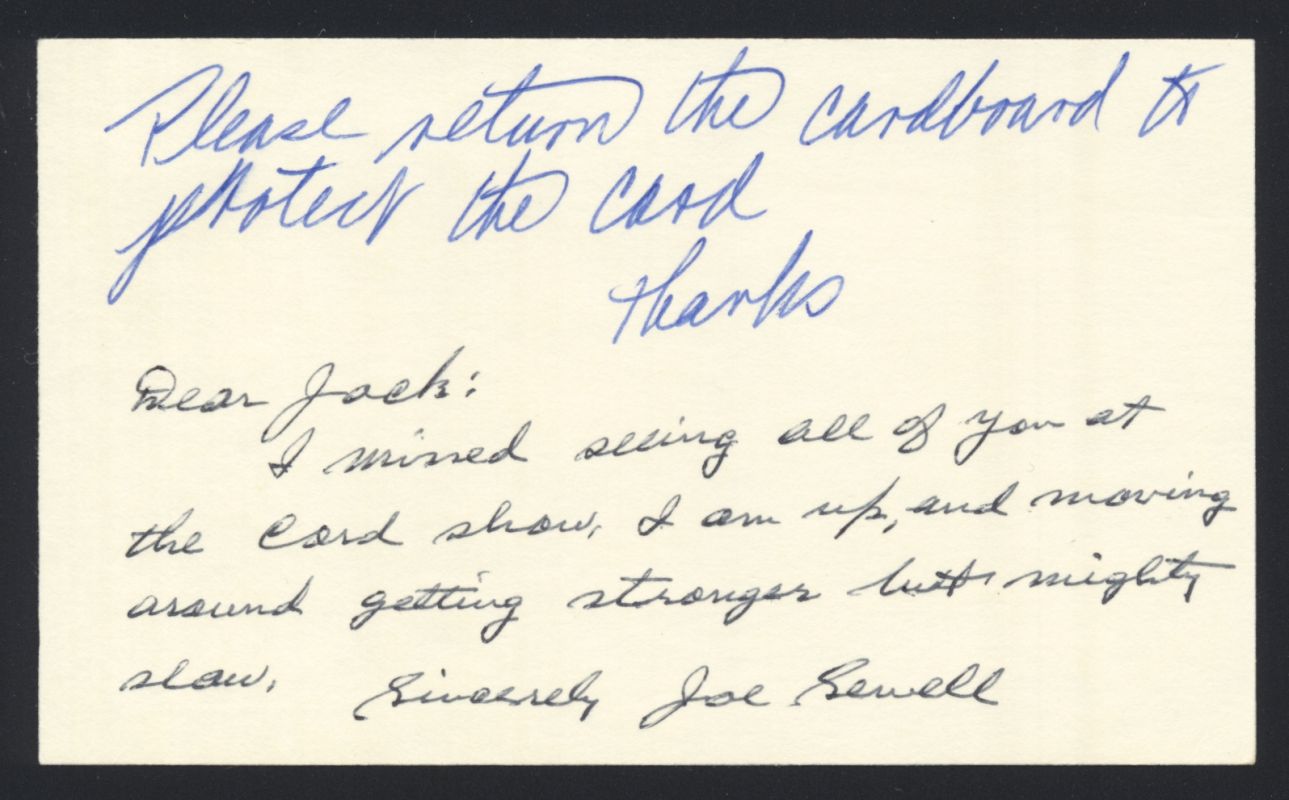 Please return the cardboard to
protect the card
Thanks
Dear Jack:
I missed seeing all of you at
the Card show, I am up, and moving
around getting stronger but mighty
slow.
Sincerely Joe Sewell